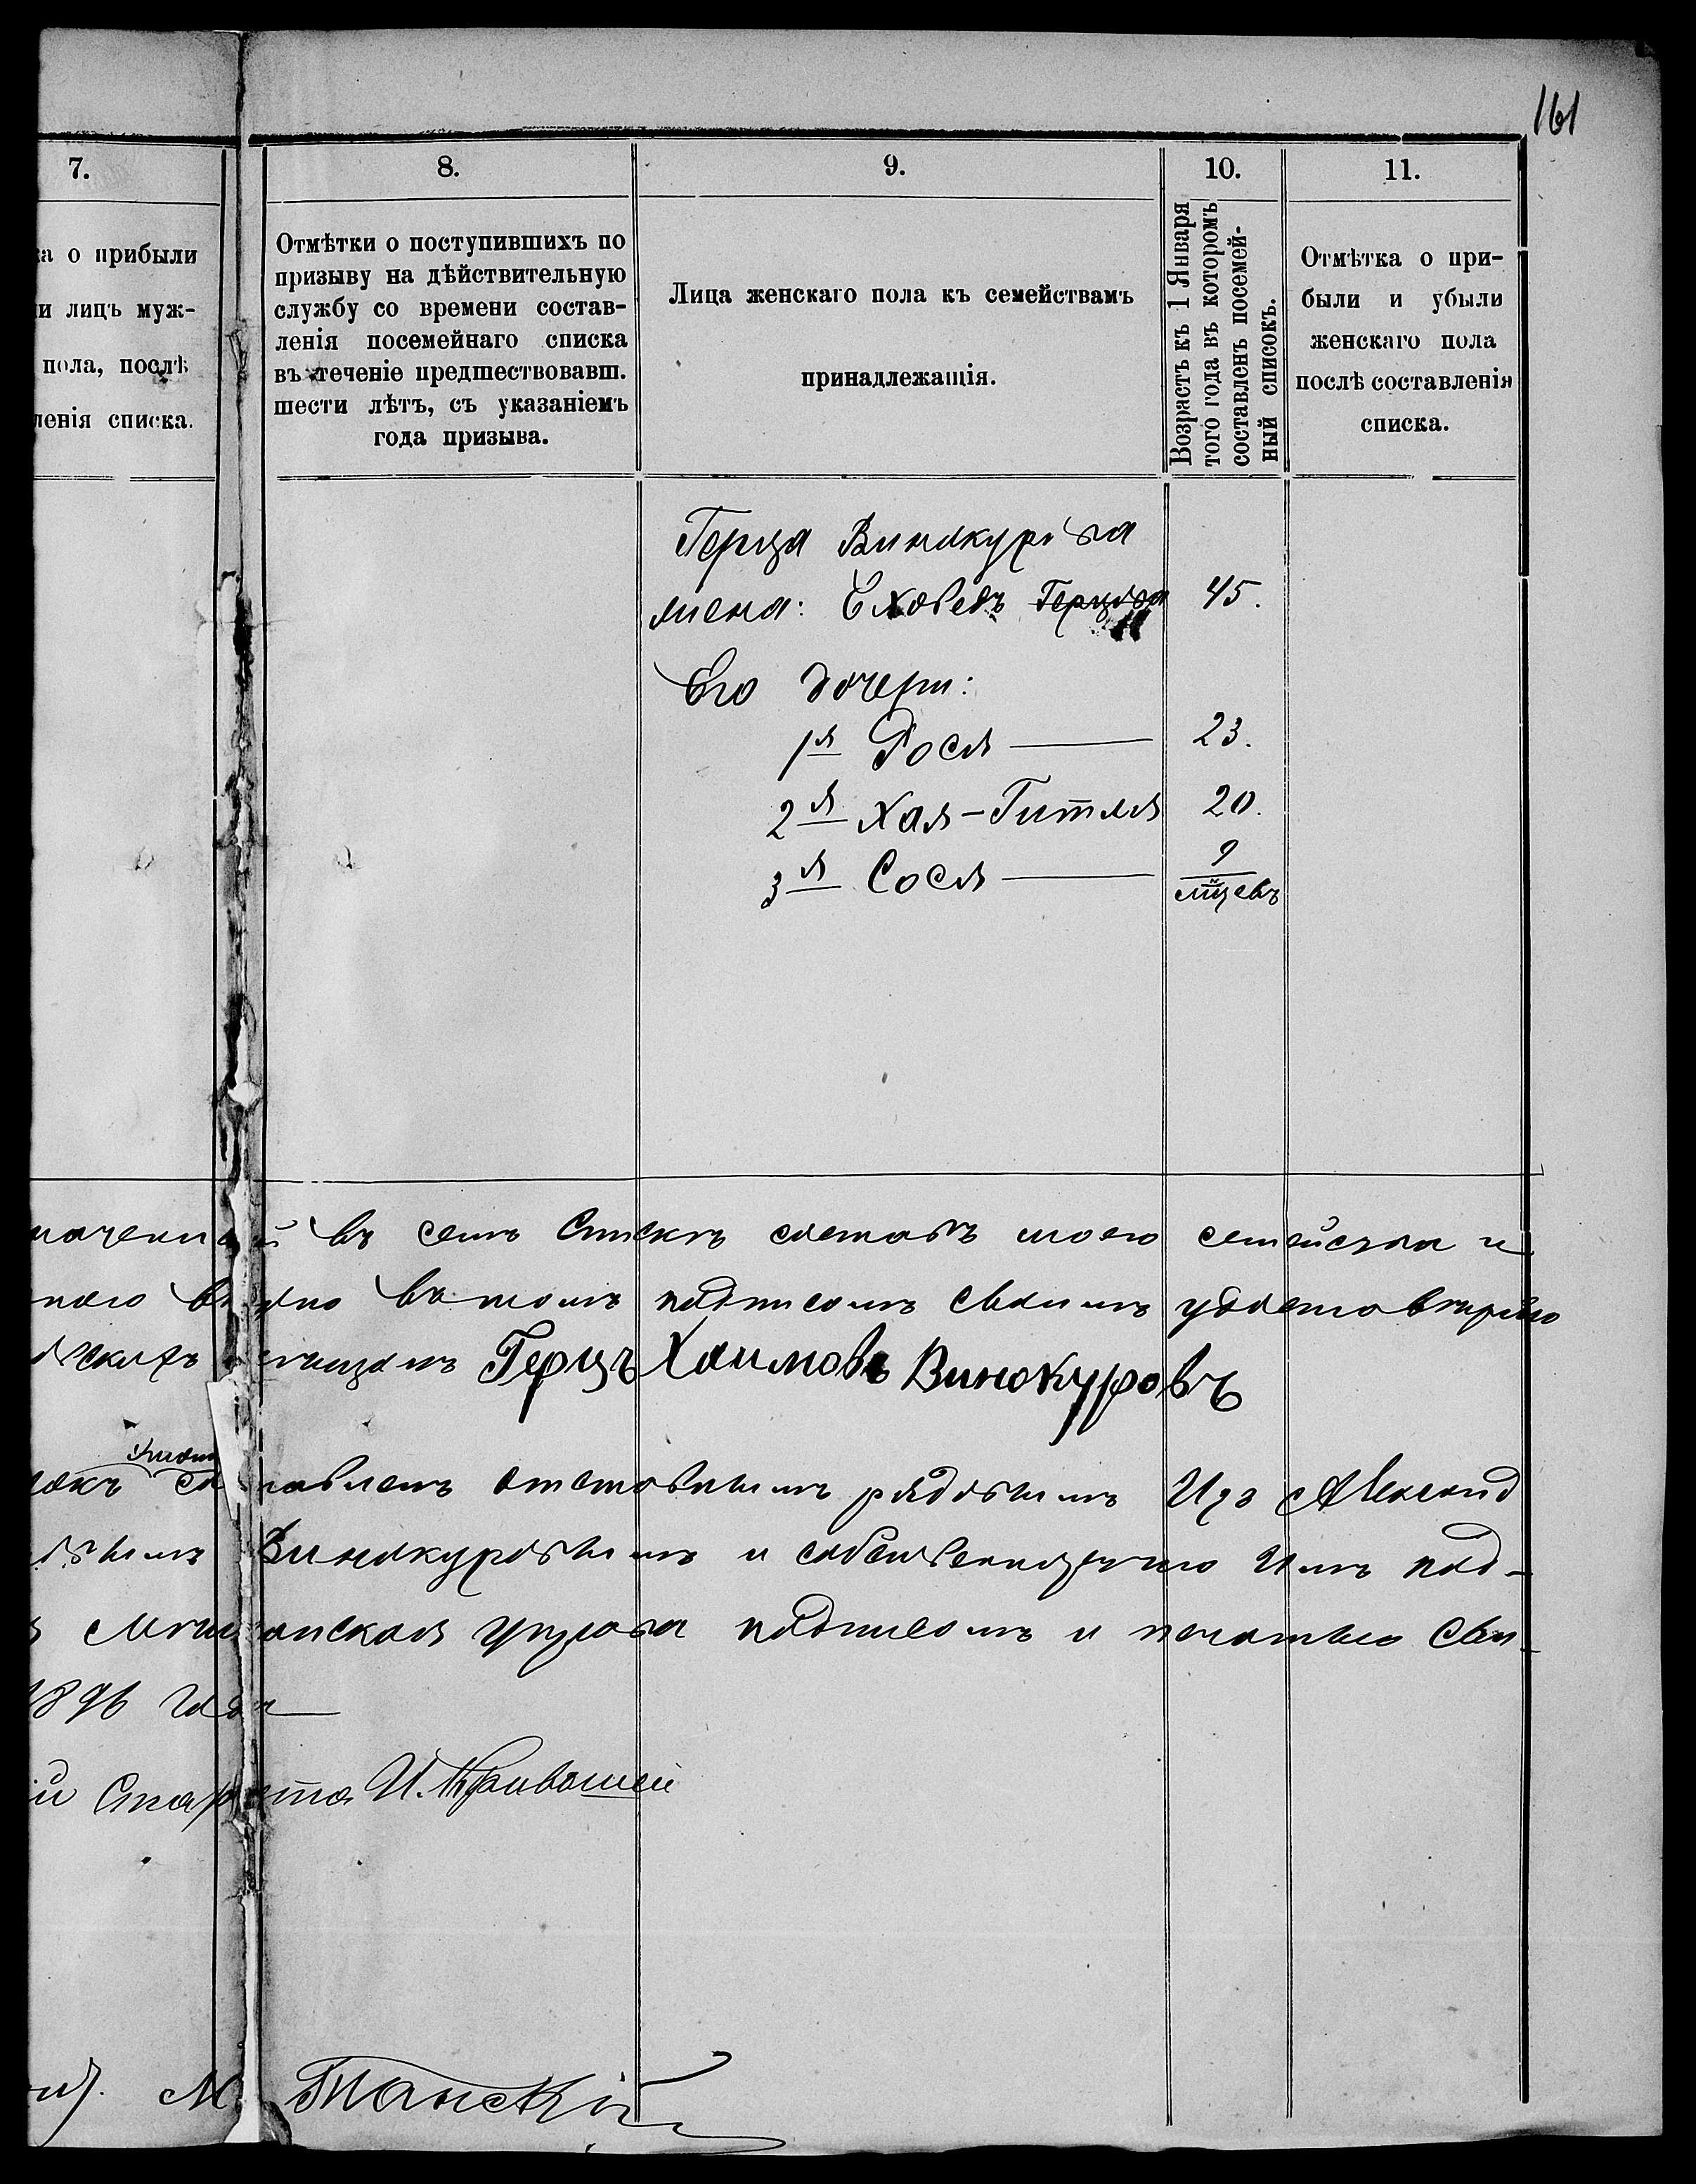 161
7.
8.
9.
10.
11.
ка о прибыли
и лицъ муж-
пола, послѣ
ленія списка.
Отмѣтки о поступившихъ по
призыву на дѣйствительную
службу со времени состав-
ленія посемейнаго списка
въ теченіе предшествовавш.
шести лѣтъ, съ указаніемъ
года призыва.
Лица женскаго пола къ семействамъ
принадлежащія.
Возрастъ къ 1 Января
того года въ которомъ
составленъ посемей-
ный списокъ.
Отмѣтка о при-
были и убыли
женскаго пола
послѣ составленія
списка.
Герца Винокурова
жена: Еховедъ Герцова 45.
Его дочери:
1я Рося 23.
2я Хая-Гитля 20.
3я Сося 9
мѣсцевъ
въ семъ Спискѣ составъ моего семейства и
въ томъ подписомъ своимъ удостовѣряю
Герцъ Хаимовъ Винокуровъ
составленъ отставнымъ рядовымъ Изъ
Винокуровымъ и собственноручно Имъ под-
Мѣщанская Управа подписомъ и печатью сви-
1896 года
Староста И. Кривошей
М. Танскій